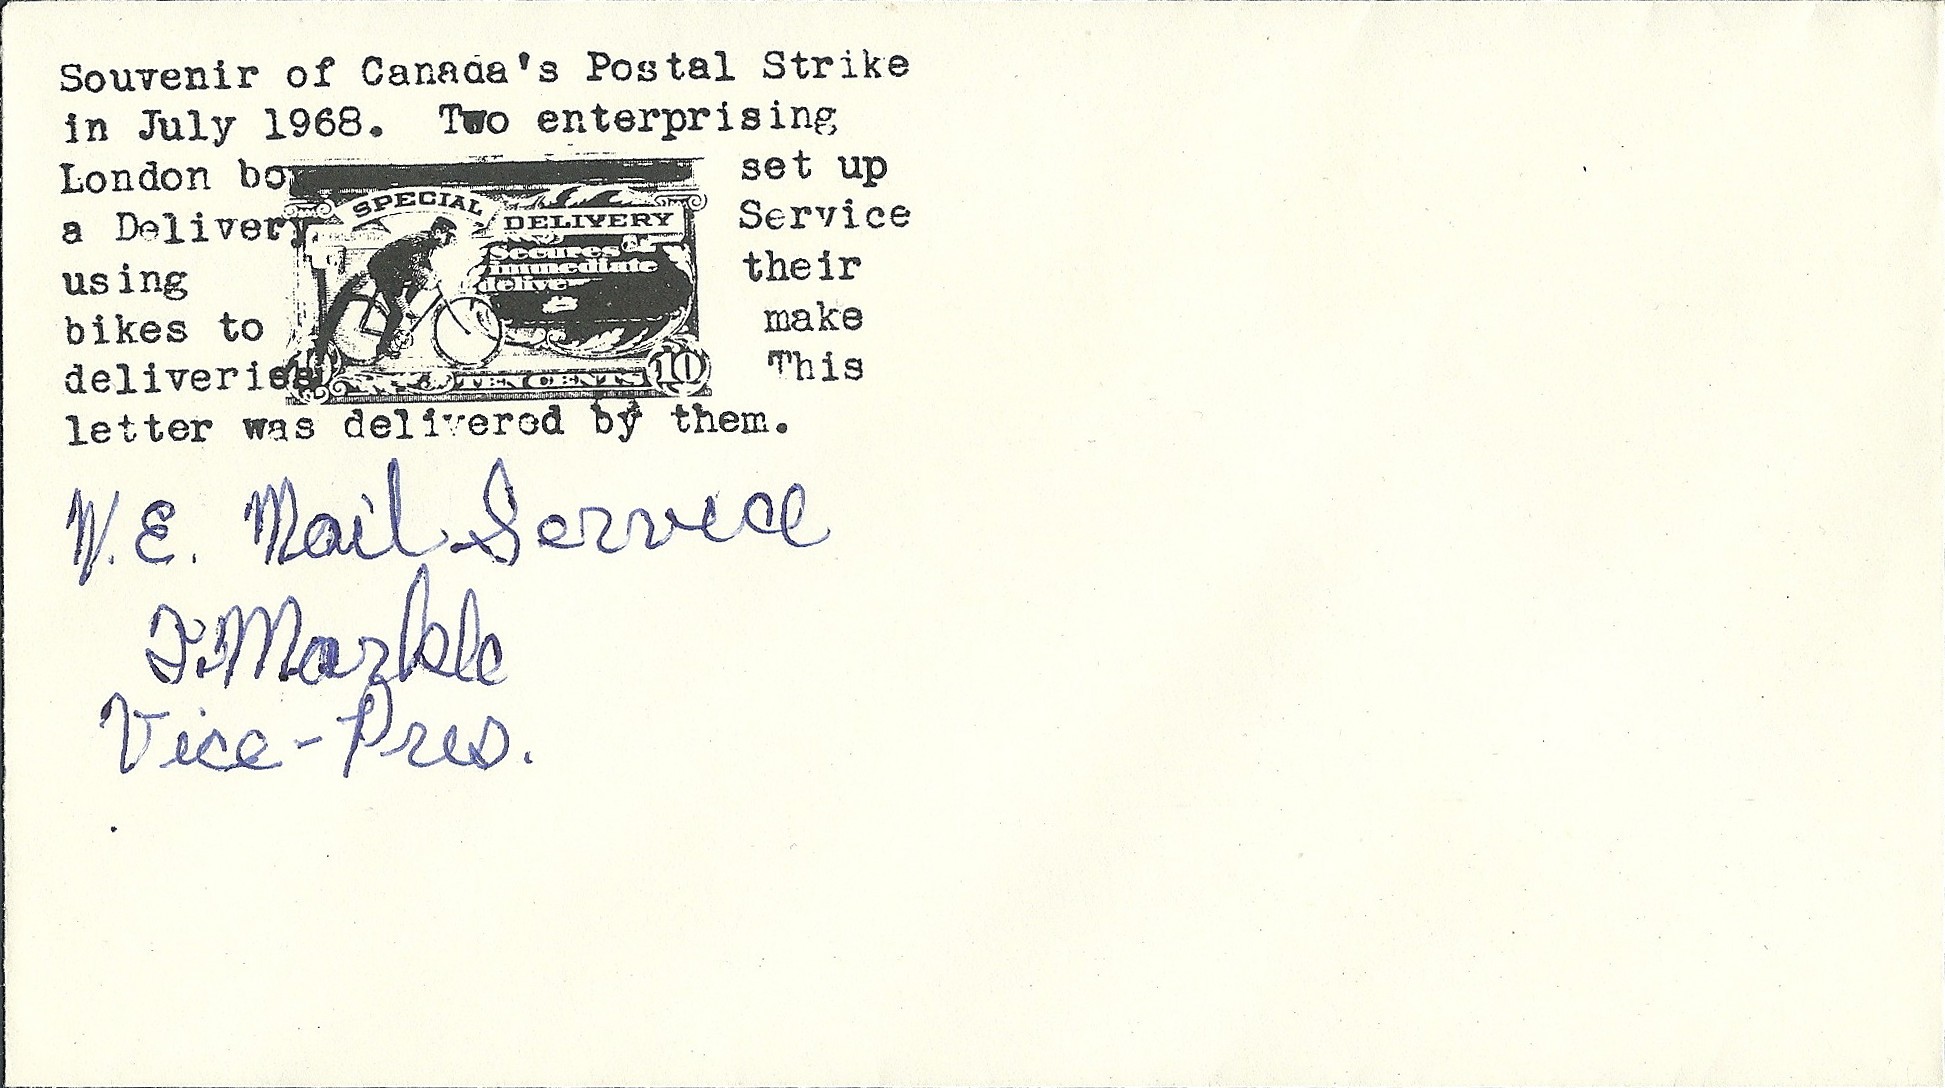 Souvenir of Canada's Postal Strike
in July 1968. Two enterprising
London bo set up
a Delivery Service
using their
bikes to make
deliveries This
letter was delivered by them.
SPECIAL DELIVERY
Secures
immediate
delive
10
TEN CENTS
W.E. Mail Service
Markle
Vice-Pres.